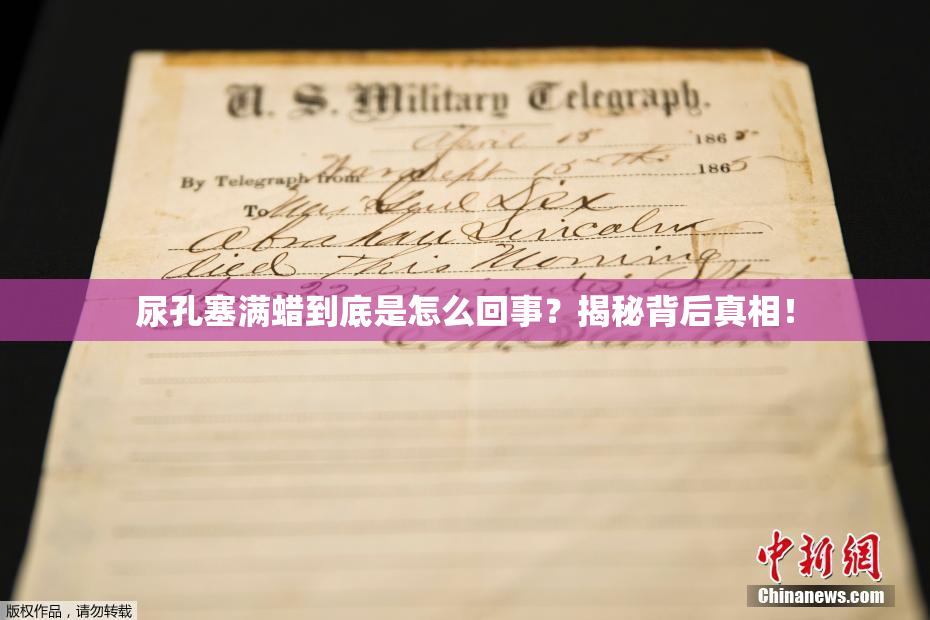 U. S. Military Telegraph.
April 15 1865-
By Telegraph from War Dept 15th 1865
To Maj Genl Dix
Abraham Lincoln
died This Morning
22 minutes after
尿孔塞满蜡到底是怎么回事？揭秘背后真相！
E. M. Stanton
中新网
Chinanews.com
版权作品，请勿转载